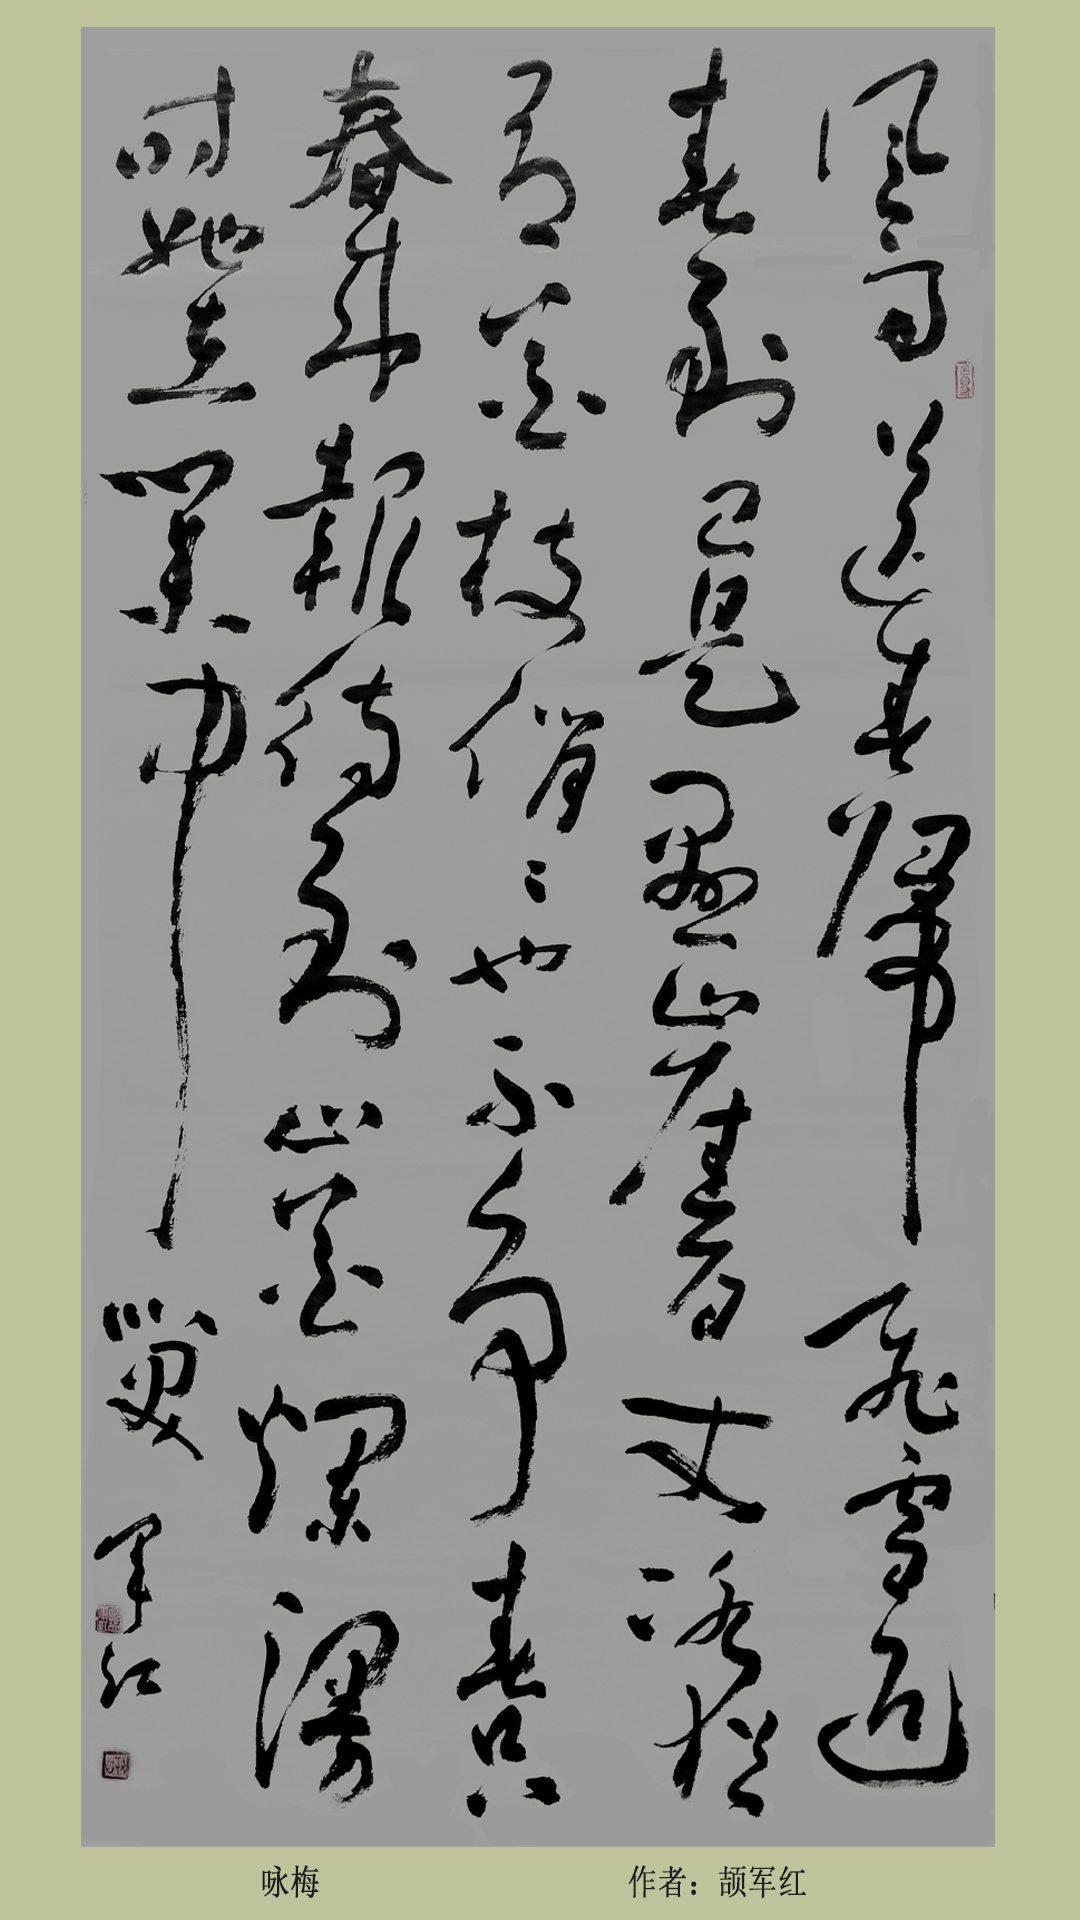 风雨送春归飞雪迎
春到已是悬崖百丈冰犹
有花枝俏〻也不争春只
春来报待到山花烂漫
时她在叢中笑 军红
咏梅 作者：颉军红